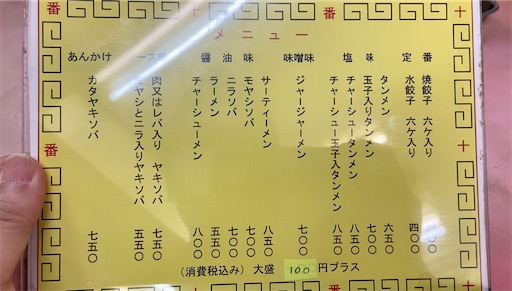 番 十
メニュー
定番
焼餃子 六ケ入り 〇〇
水餃子 六ケ入り 四〇〇
塩味
タンメン 六五〇
玉子入りタンメン 七〇〇
チャーシュータンメン 八〇〇
チャーシュー玉子入タンメン 八五〇
味噌味
ジャージャーメン 七〇〇
醤油味
サーティーメン 八五〇
モヤシソバ 七〇〇
ニラソバ 七〇〇
ラーメン 五五〇
チャーシューメン 八〇〇
ース
肉又はレバ入り ヤキソバ 七五〇
ヤシとニラ入りヤキソバ 五五〇
あんかけ
カタヤキソバ 七五〇
(消費税込み) 大盛 100 円プラス
番 十
番 十